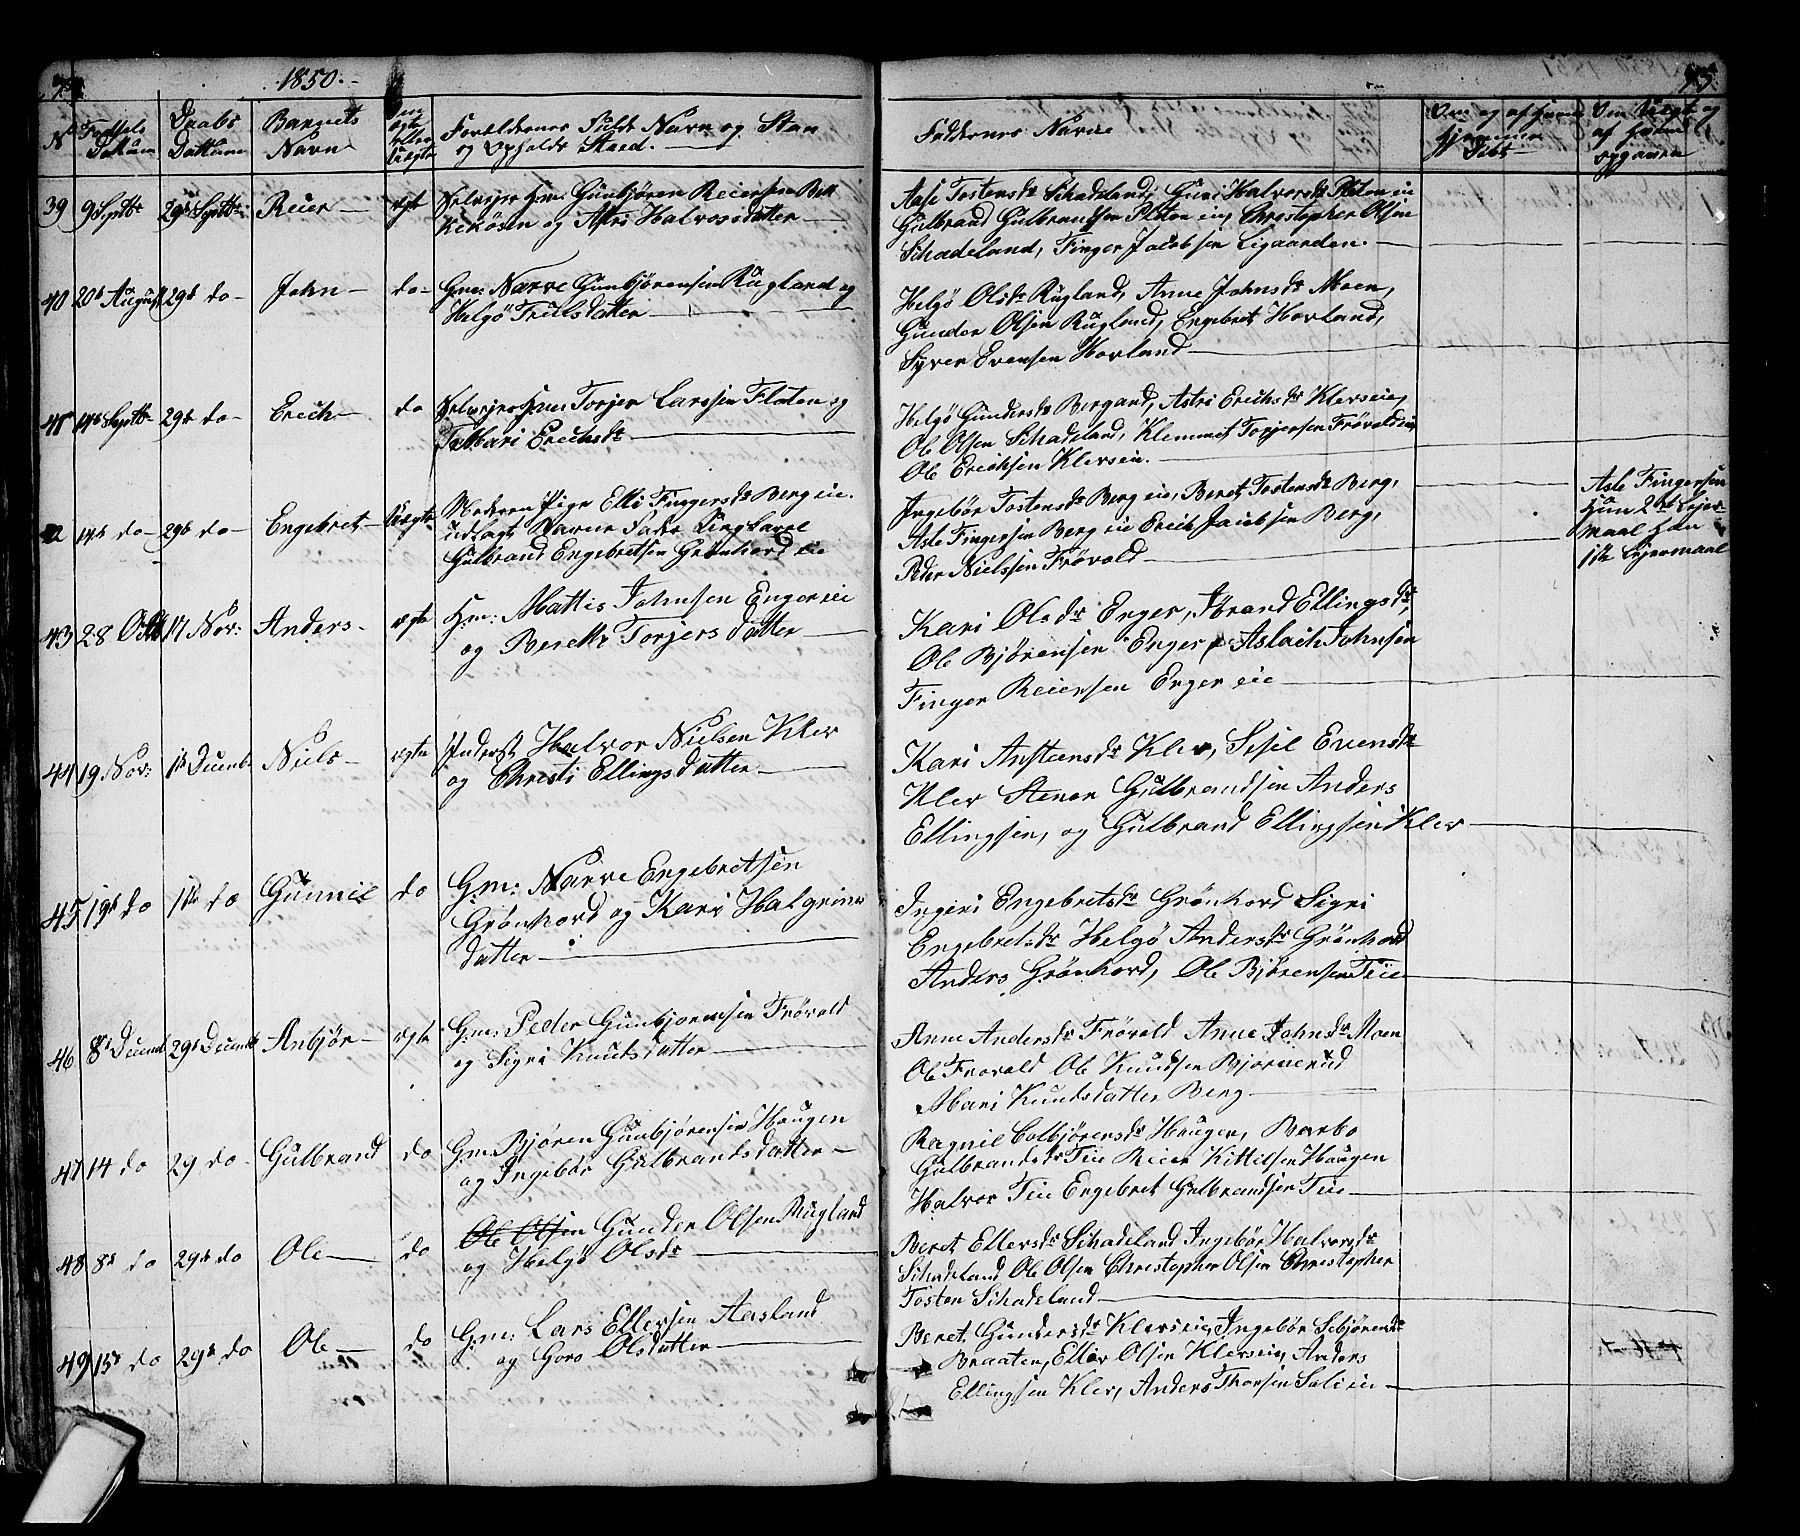 1850.
45.
No
Fødsels Datum
Daabs Datum
Barnets Navn
Om ægte eller Uægte
Forældrenes Fulde Navn og Stan
og Opholds Sted.
Faddernes Navne
Om og af hvem hjemme Døbt
Om Uægt og af hvem
39 9 Septbr 29d Septbr Reier ægt
Gm: Gunbjøren Reiersen
og Astri Halvorsdatter
Aase Tostensdr Skadeland, Guri Halvorsdr Floten eie
Gulbrand Gulbrandsen Floten eie, Christopher Olsen
Skadeland, Finger Jacobsen Ligaarden.
40 20d August 29d do John do
Gm: Narve Gunbjørensen Rugland og
Helgø Trulsdatter
Helgø Olsdr Rugland, Anne Johnsdr Moen,
Gunder Olsen Rugland, Engebret Hovland,
Syver Evensen Hovland
14d Septbr 29d do Erich do
Torjer Larssen Floten og
Mari Erichsdr
Helgø Gundersdr Bergand, Astri Erichsdr Klevseie,
Ole Olsen Skadeland, Klemmet Torjersen Frøvold eie
Ole Erichsen Klevseie.
14d do 29d do Engebret Uægte
Moderen Pige Elli Fingersdr Berg eie.
udlagt Barne Fader Ungkarl
Gulbrand Engebretsen Grønhord eie
Ingebør Tostensdr Berg eie, Beret Tostensdr Berg,
Asle Fingersen Berg eie Erich Jacobsen Berg,
Peder Nielssen Frøvold
Asle Fingersen
Hun 2det Lejer-
maal Han
1te Lejermaal
43 28 Okt 17 Nov: Anders ægte
Gm: Mattis Johnsen Enger eie
og Berethe Torjersdatter
Kari Olsdr Enger, Jørand Ellingsdr,
Ole Bjørensen Enger, Aslach Johnsen
Finger Reiersen Enger eie
44 19 Nov: 1d Decemb Niels ægte
Halvor Nielsen Klev
og Christi Ellingsdatter
Kari Anstensdr Klev, Sisil Evensdr
Klev Stener Gulbrandsen Anders
Ellingsen, og Gulbrand Ellingsen Klev
45 19d do 1te do Gunnil do
Gm: Narve Engebretsen
Grønhord og Kari Halgrims
datter
Ingeri Engebretsdr Grønhord Sigri
Engebretsdr Helgø Andersdr Grønhord
Anders Grønhord, Ole Bjørensen Tiie
46 8d Decemb 29d Decemb Anbjør ægte
Gm: Peder Gunbjørensen Frøvold
og Sigri Knudsdatter
Anne Andersdr Frøvold Anne Johnsdr Moen
Ole Frøvold Ole Knudsen Bjørnerud
Mari Knudsdatter Berg
47 14 do 29 do Gulbrand do
Gm. Bjøren Gunbjørensen Haugen
og Ingebør Gulbrandsdatter
Ragnil Colbjørensdr Haugen, Barbo
Gulbrandsdr Tiie Reier Kittilsen Haugen
Halvor Tiie Engebret Gulbrandsen Tiie
48 8d do 29d do Ole do
Ole Olsen Gunder Olsen Rugland
og Helgø Olsdr
Beret Ellevsdr Skadeland Ingebør Halvorsdr
Skadeland Ole Olsen Christopher Olsen Christopher
Tosten Skadeland
49 15d do 29d do Ole do
Gm: Lars Ellevsen Aasland
og Goro Olsdatter
Beret Gundersdr Klevseie, Ingebør Sebjørensdr
Braaten, Ellev Olsen Klevseie, Anders
Ellingsen Klev, Anders Thorsen Sali eie